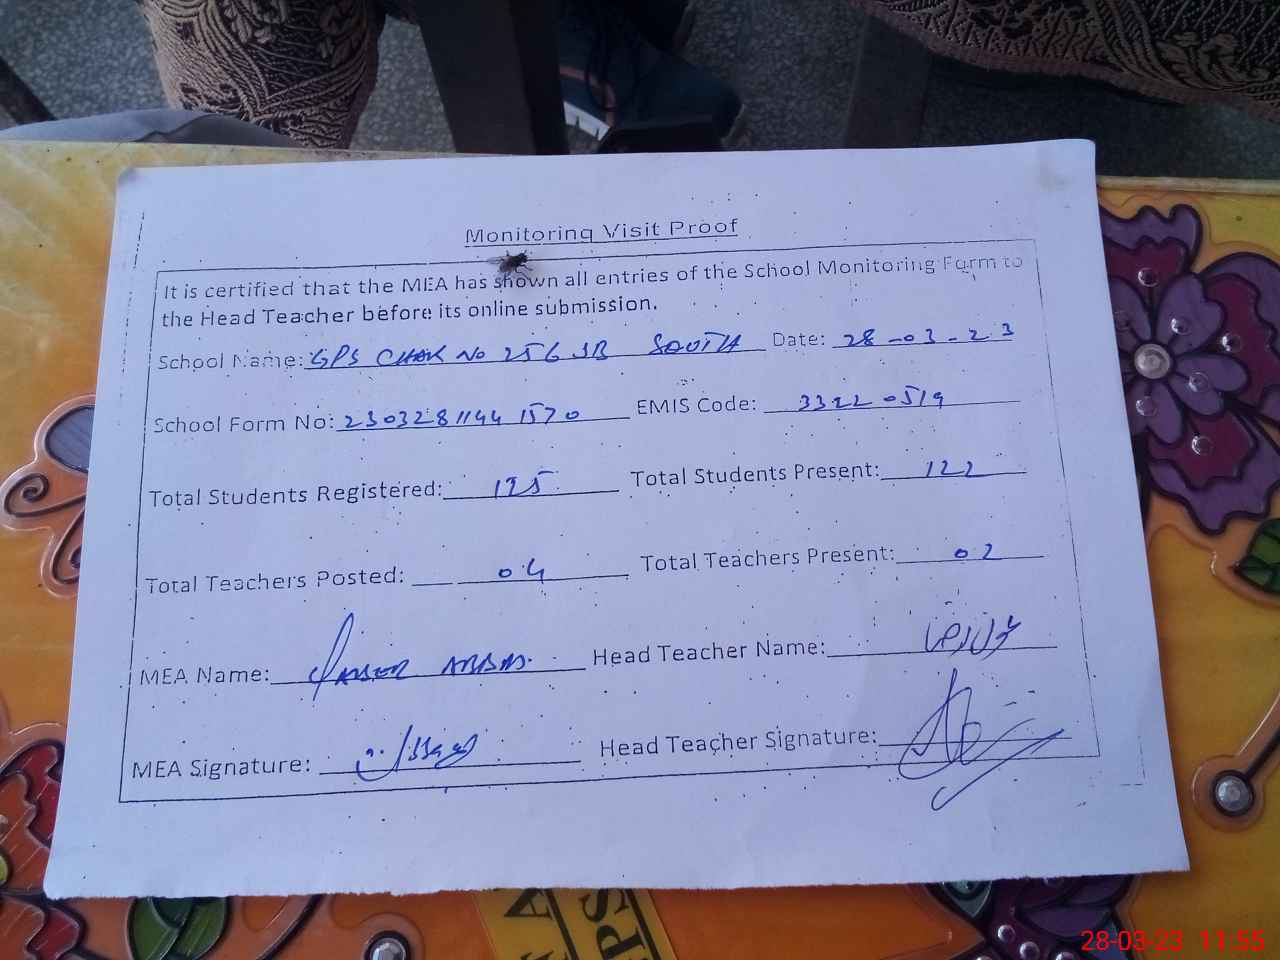 Monitoring Visit Proof
It is certified that the MEA has shown all entries of the School Monitoring Form to
the Head Teacher before its online submission.
School Name: GPS CHAK No 256 JB SOUTH Date: 28-03-23
School Form No: 2303281144 1570 EMIS Code: 33220519
Total Students Registered: 175 Total Students Present: 122
Total Teachers Posted: 04 Total Teachers Present: 02
MEA Name: ABBAS. Head Teacher Name:
MEA Signature: Head Teacher Signature:
A
PS
28-03-23 11:55